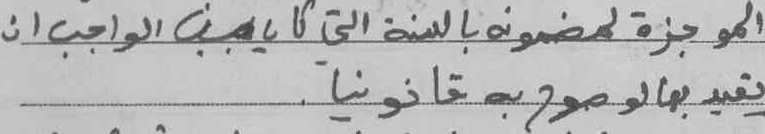 الموجزة لمضمونه بالسنة التي كان يجب الواجب ان
يقيد بها لو صرح به قانونيا.